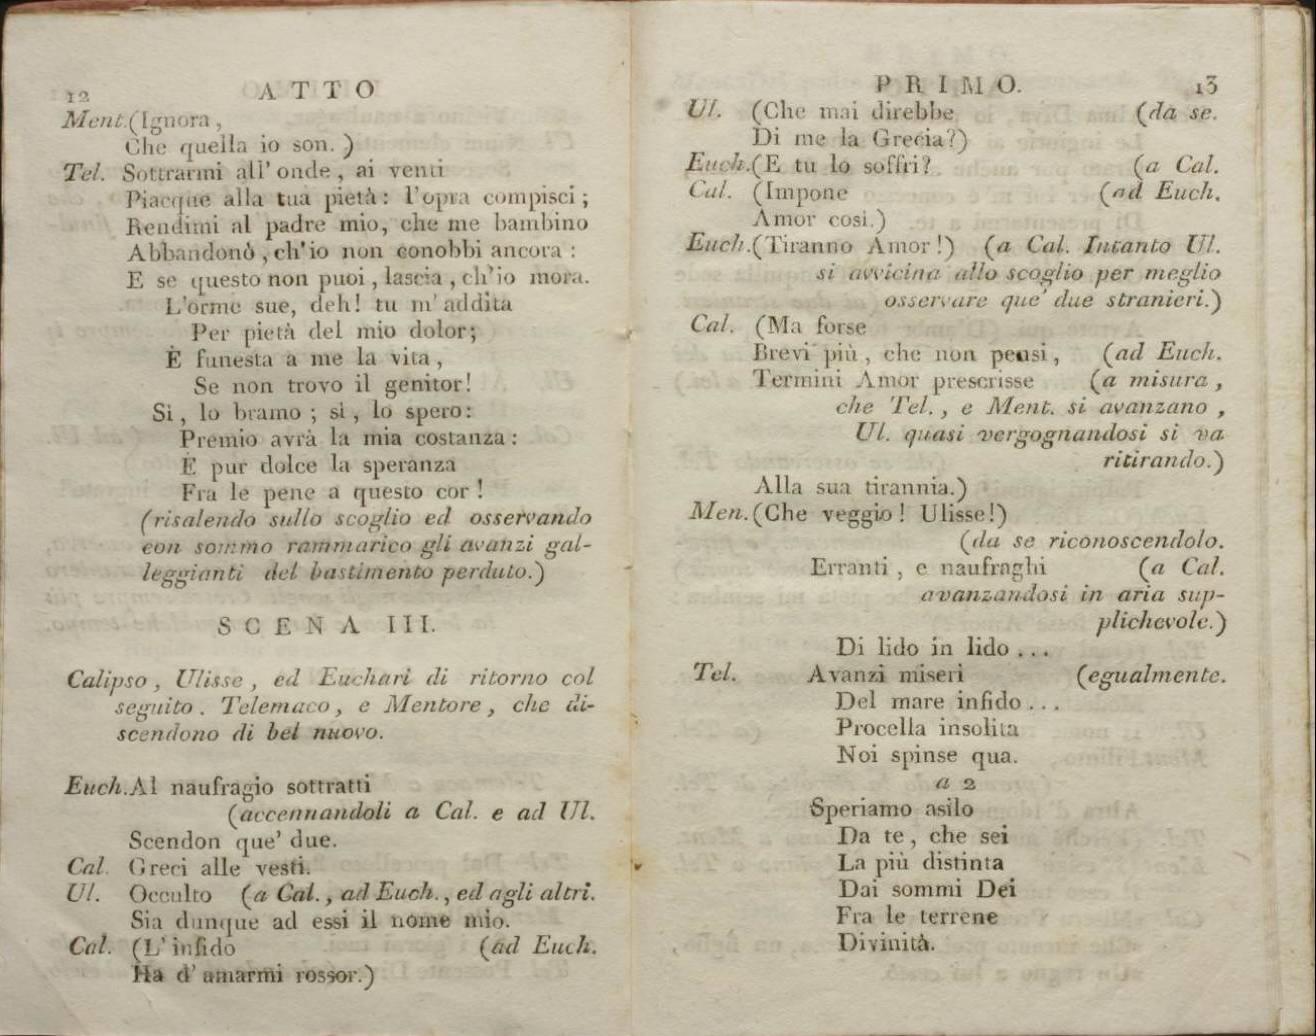 12 ATTO
Ment.(Ignora,
Che quella io son.)
Tel. Sottrarmi all' onde, ai venti
Piacque alla tua pietà: l'opra compisci;
Rendimi al padre mio, che me bambino
Abbandonò, ch'io non conobbi ancora:
E se questo non puoi, lascia, ch'io mora.
L'orme sue, deh! tu m'addita
Per pietà del mio dolor;
È funesta a me la vita,
Se non trovo il genitor!
Si, lo bramo; sì, lo spero:
Premio avrà la mia costanza:
È pur dolce la speranza
Fra le pene a questo cor!
(risalendo sullo scoglio ed osservando
con sommo rammarico gli avanzi gal-
leggianti del bastimento perduto.)
SCENA III.
Calipso, Ulisse, ed Euchari di ritorno col
seguito. Telemaco, e Mentore, che di-
scendono di bel nuovo.
Euch.Al naufragio sottratti
(accennandoli a Cal. e ad Ul.
Scendon que' due.
Cal. Greci alle vesti.
Ul. Occulto (a Cal., ad Euch., ed agli altri.
Sia dunque ad essi il nome mio.
Cal. (L'infido (ad Euch.
Ha d'amarmi rossor.)
PRIMO. 13
Ul. (Che mai direbbe (da se.
Di me la Grecia?)
Euch.(E tu lo soffri? (a Cal.
Cal. (Impone (ad Euch.
Amor così.)
Euch.(Tiranno Amor!) (a Cal. Intanto Ul.
si avvicina allo scoglio per meglio
osservare que' due stranieri.)
Cal. (Ma forse
Brevi più, che non pensi, (ad Euch.
Termini Amor prescrisse (a misura,
che Tel., e Ment. si avanzano,
Ul. quasi vergognandosi si va
ritirando.)
Alla sua tirannia.)
Men.(Che veggio! Ulisse!)
(da se riconoscendolo.
Erranti, e naufraghi (a Cal.
avanzandosi in aria sup-
plichevole.)
Di lido in lido...
Tel. Avanzi miseri (egualmente.
Del mare infido...
Procella insolita
Noi spinse qua.
a 2
Speriamo asilo
Da te, che sei
La più distinta
Dai sommi Dei
Fra le terrene
Divinità.